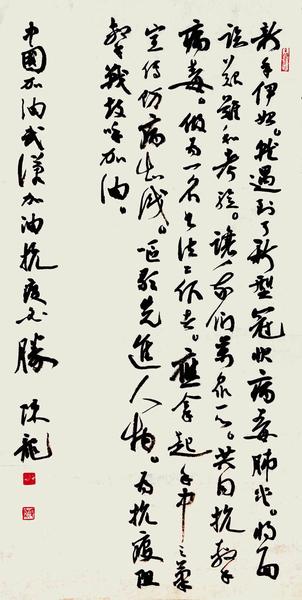 新年伊始。就遇到了新型冠状病毒肺炎。将面
临艰难和考验。讓我们萬众一心。共同抗击
病毒。做为一名书法工作者。應拿起手中之笔
宣传防病知识。讴歌先進人物。为抗疫阻
击战鼓呼加油。
中国加油武漢加油抗疫必勝 陈龍